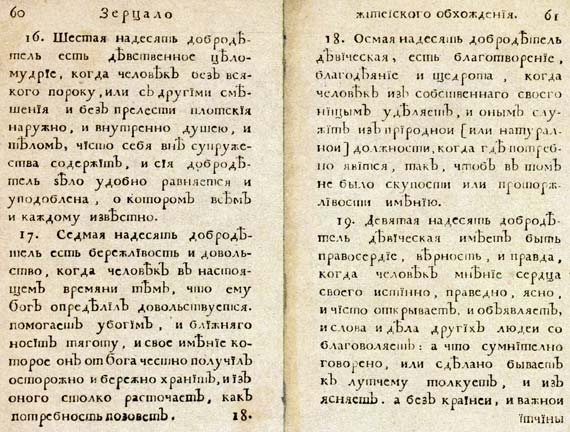 60 Зерцало
16. Шестая надесять добродѣ-
тель есть дѣвственное цѣло-
мудрїе, когда человѣкъ безъ вся-
кого пороку, или съ другїми смѣ-
шенїя и безъ прелести плотскїя
наружно, и внутренно душею, и
тѣломъ, чїсто себя внѣ супруже-
ства содержїтъ, и сїя добродѣ-
тель ѕѣло удобно равняется и
уподоблена, о которомъ всѣмъ
и каждому извѣстно.
17. Седмая надесять добродѣ-
тель есть бережлївость и доволь-
ство, когда человѣкъ въ настоя-
щемъ времяни тѣмъ, что ему
богъ опредѣлїлъ довольствуется.
помогаетъ убогїмъ, и блїжняго
носїтъ тяготу, и свое имѣнїе ко-
торое онъ отъ бога честно получїлъ
осторожно и бережно хранїтъ, и їзъ
оного столко расточаетъ, какъ
потребность позоветъ. 18.
жїтеіского обхожденїя. 61
18. Осмая надесять добродѣтель
дѣвїческая, есть благотворенїе,
благодѣянїе и щедрота, когда
человѣкъ изъ собственнаго своего
нїщымъ удѣляетъ, и онымъ слу-
жїтъ изъ прїродноі [или натурал-
ноі] должности, когда гдѣ потреб-
но явїтся, такъ, чтобъ въ томъ
не было скупости или проторж-
лївости имѣнїю.
19. Девятая надесять добродѣ-
тель дѣвїческая имѣетъ быть
правосердїе, вѣрность, и правда,
когда человѣкъ мнѣнїе сердца
своего истїнно, праведно, ясно,
и чїсто открываетъ, и объявляетъ,
и слова и дѣла другїхъ людеі со
благоволяетъ: а что сумнїтелно
говорено, или сдѣлано бываетъ
къ лутчему толкуетъ, и изъ
ясняетъ. а безъ краінеі, и важноі
їтчїны